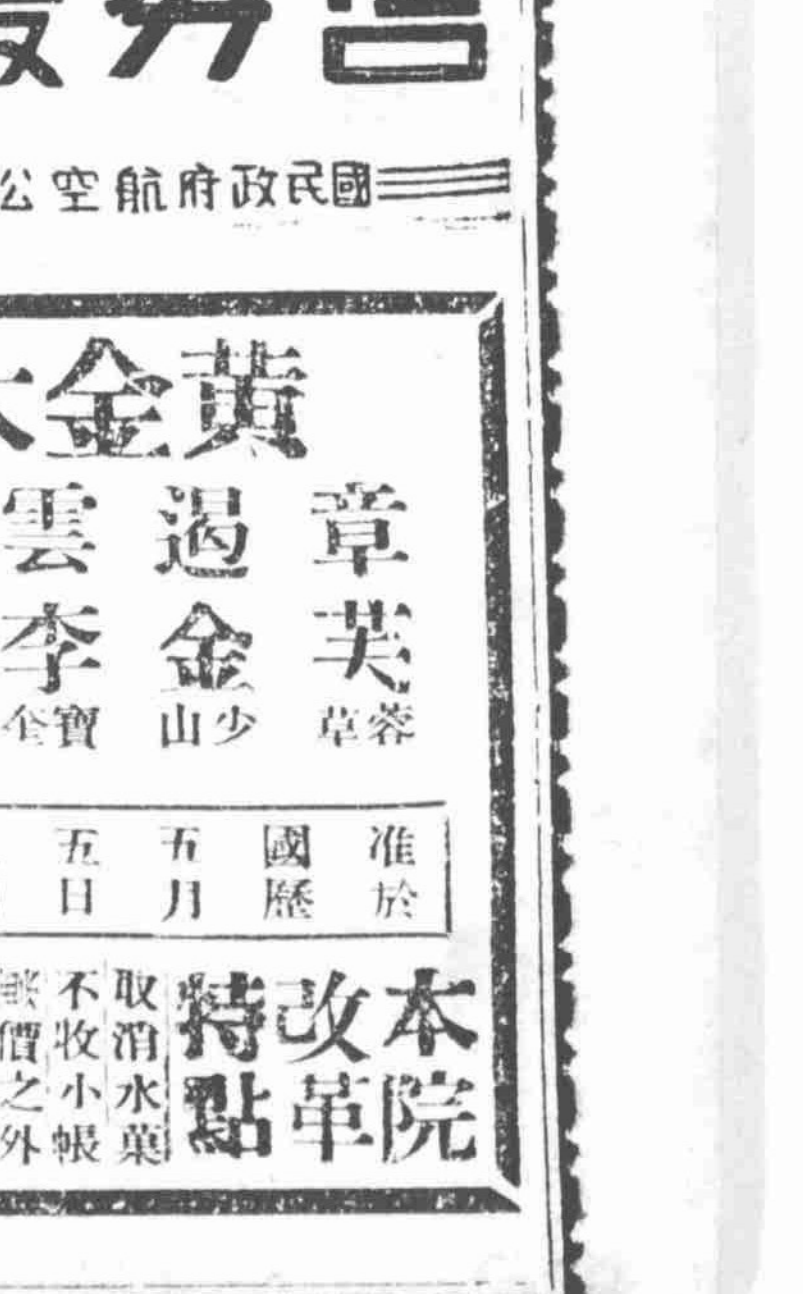 國民政府航空公
黃金
章遏雲
芙蓉草
金少山
李寶奎
准於
國歷
五月
五日
本院
改革
特點
取消水菓
不收小帳
價之外